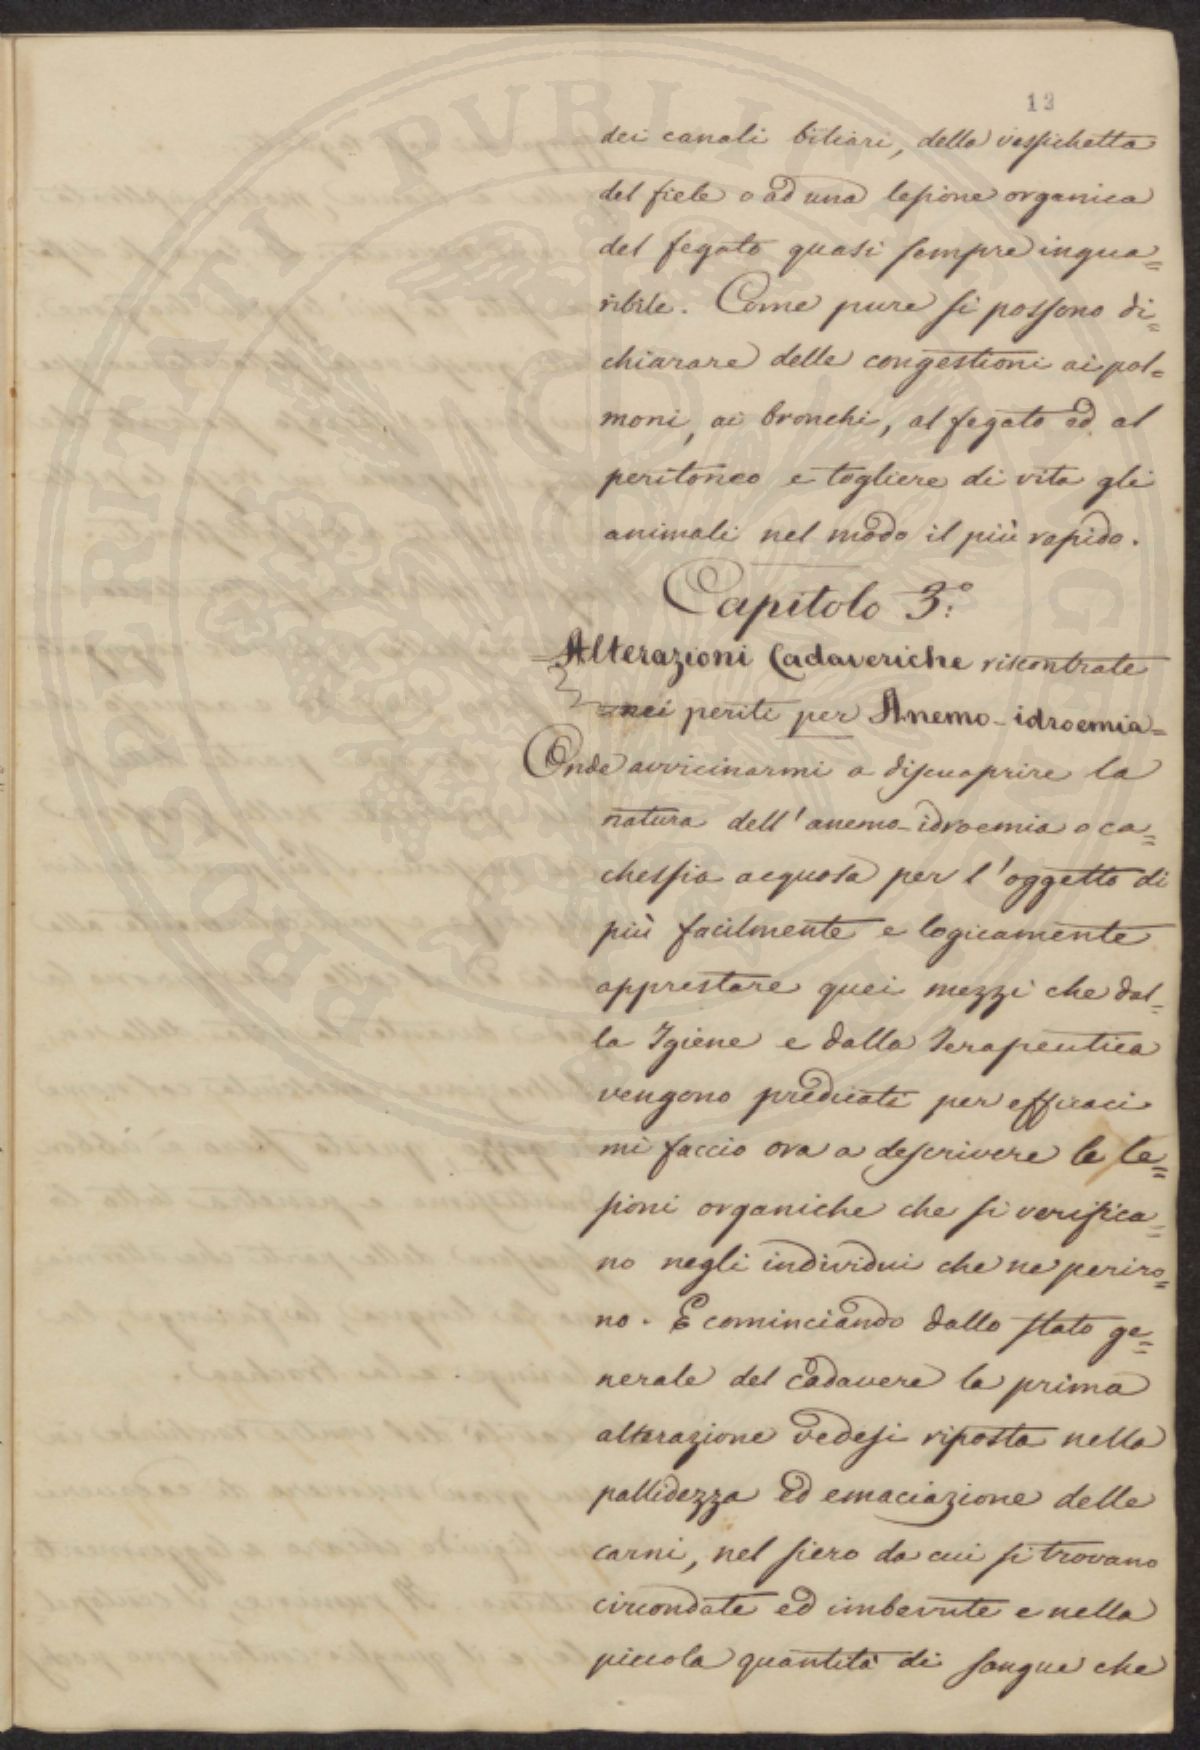 13
dei canali biliari, della vessichetta
del fiele o ad una lesione organica
del fegato quasi sempre ingua=
ribile. Come pure si possono di=
chiarare delle congestioni ai pol=
moni, ai bronchi, al fegato ed al
peritoneo e togliere di vita gli
animali nel modo il più rapido.
Capitolo 3.o
Alterazioni Cadaveriche riscontrate
=nei periti per Anemo-idroemia=
Onde avvicinarmi a discuoprire la
natura dell'anemo-idroemia o ca=
chessia acquosa per l'oggetto di
più facilmente e logicamente
apprestare quei mezzi che dal=
la Igiene e dalla Terapeutica
vengono predicati per efficaci
mi faccio ora a descrivere le le=
sioni organiche che si verifica=
no negli individui che ne periro=
no. E cominciando dallo stato ge=
nerale del cadavere la prima
alterazione vedesi riposta nella
pallidezza ed emaciazione delle
carni, nel siero da cui si trovano
circondate ed imbevute e nella
piccola quantità di sangue che
PROSPERITATI PVBLICAE AVGENDAE